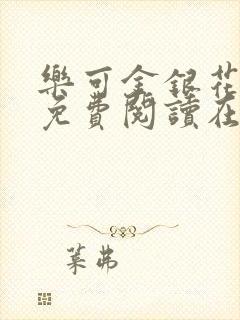 樂可金銀花
免費閱讀在
葉弗